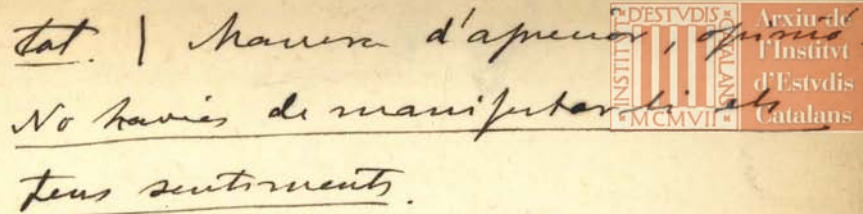 tat. | Manera d'apreciar, opinió.
No havies de manifestar-li els
teus sentiments.
INSTITVT D'ESTVDIS CATALANS
MCMVII
Arxiu de
l'Institvt
d'Estvdis
Catalans